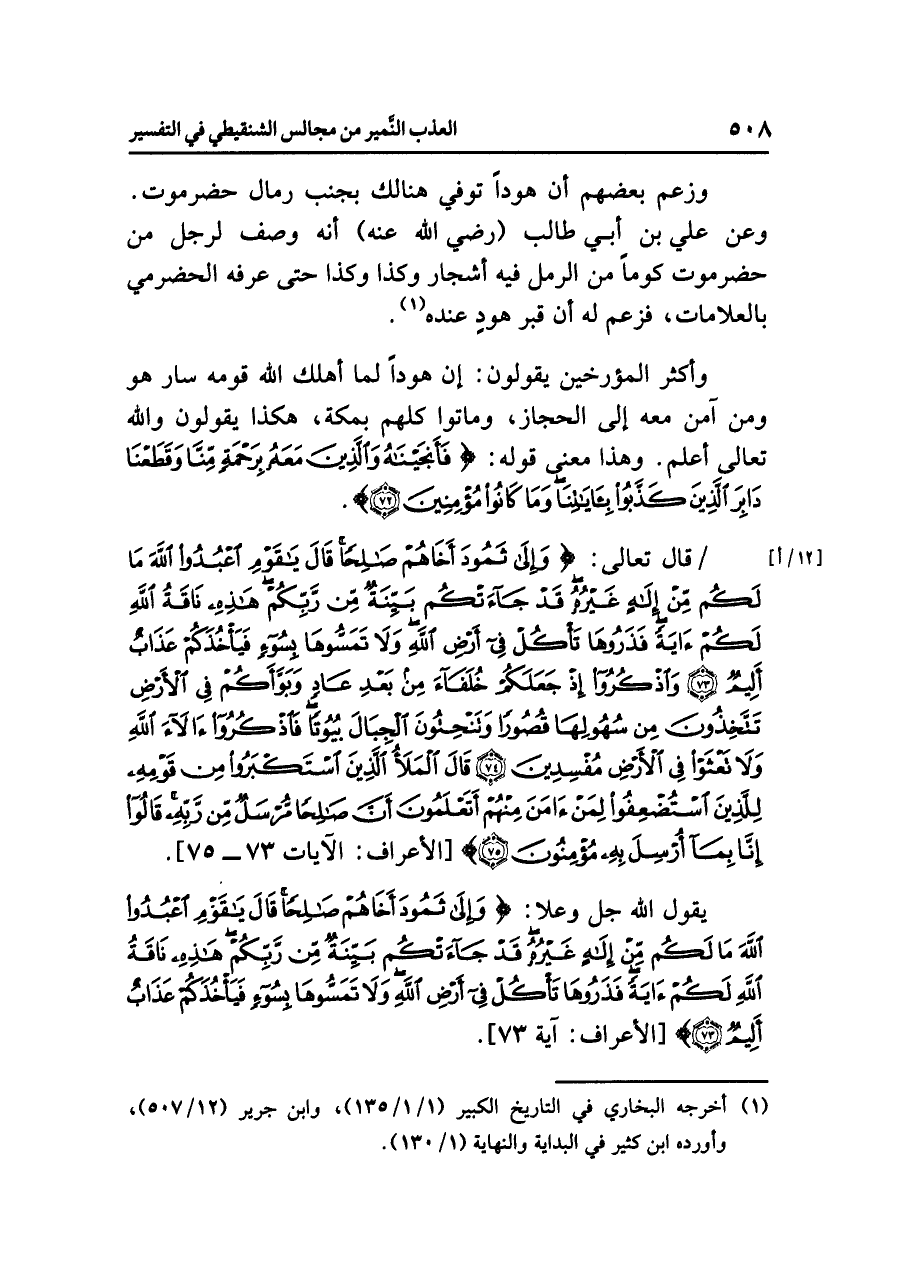 ٥٠٨ العذب النَّمير من مجالس الشنقيطي في التفسير
وزعم بعضهم أن هوداً توفي هنالك بجنب رمال حضرموت.
وعن علي بن أبي طالب (رضي الله عنه) أنه وصف لرجل من
حضرموت كوماً من الرمل فيه أشجار وكذا وكذا حتى عرفه الحضرمي
بالعلامات، فزعم له أن قبر هودٍ عنده(١).
وأكثر المؤرخين يقولون: إن هوداً لما أهلك الله قومه سار هو
ومن آمن معه إلى الحجاز، وماتوا كلهم بمكة، هكذا يقولون والله
تعالى أعلم. وهذا معنى قوله: ﴿فَأَنجَيْنَـٰهُ وَٱلَّذِينَ مَعَهُۥ بِرَحْمَةٍ مِّنَّا وَقَطَعْنَا
دَابِرَ ٱلَّذِينَ كَذَّبُوا۟ بِـَٔايَـٰتِنَا ۖ وَمَا كَانُوا۟ مُؤْمِنِينَ ۝٧٢﴾.
[١٢/أ] / قال تعالى: ﴿وَإِلَىٰ ثَمُودَ أَخَاهُمْ صَـٰلِحًا ۗ قَالَ يَـٰقَوْمِ ٱعْبُدُوا۟ ٱللَّهَ مَا
لَكُم مِّنْ إِلَـٰهٍ غَيْرُهُۥ ۖ قَدْ جَآءَتْكُم بَيِّنَةٌ مِّن رَّبِّكُمْ ۖ هَـٰذِهِۦ نَاقَةُ ٱللَّهِ
لَكُمْ ءَايَةً ۖ فَذَرُوهَا تَأْكُلْ فِىٓ أَرْضِ ٱللَّهِ ۖ وَلَا تَمَسُّوهَا بِسُوٓءٍ فَيَأْخُذَكُمْ عَذَابٌ
أَلِيمٌ ۝٧٣ وَٱذْكُرُوٓا۟ إِذْ جَعَلَكُمْ خُلَفَآءَ مِنۢ بَعْدِ عَادٍ وَبَوَّأَكُمْ فِى ٱلْأَرْضِ
تَتَّخِذُونَ مِن سُهُولِهَا قُصُورًا وَتَنْحِتُونَ ٱلْجِبَالَ بُيُوتًا ۖ فَٱذْكُرُوٓا۟ ءَالَآءَ ٱللَّهِ
وَلَا تَعْثَوْا۟ فِى ٱلْأَرْضِ مُفْسِدِينَ ۝٧٤ قَالَ ٱلْمَلَأُ ٱلَّذِينَ ٱسْتَكْبَرُوا۟ مِن قَوْمِهِۦ
لِلَّذِينَ ٱسْتُضْعِفُوا۟ لِمَنْ ءَامَنَ مِنْهُمْ أَتَعْلَمُونَ أَنَّ صَـٰلِحًا مُّرْسَلٌ مِّن رَّبِّهِۦ ۚ قَالُوٓا۟
إِنَّا بِمَآ أُرْسِلَ بِهِۦ مُؤْمِنُونَ ۝٧٥﴾ [الأعراف: الآيات ٧٣ ــ ٧٥].
يقول الله جل وعلا: ﴿وَإِلَىٰ ثَمُودَ أَخَاهُمْ صَـٰلِحًا ۗ قَالَ يَـٰقَوْمِ ٱعْبُدُوا۟
ٱللَّهَ مَا لَكُم مِّنْ إِلَـٰهٍ غَيْرُهُۥ ۖ قَدْ جَآءَتْكُم بَيِّنَةٌ مِّن رَّبِّكُمْ ۖ هَـٰذِهِۦ نَاقَةُ
ٱللَّهِ لَكُمْ ءَايَةً ۖ فَذَرُوهَا تَأْكُلْ فِىٓ أَرْضِ ٱللَّهِ ۖ وَلَا تَمَسُّوهَا بِسُوٓءٍ فَيَأْخُذَكُمْ عَذَابٌ
أَلِيمٌ ۝٧٣﴾ [الأعراف: آية ٧٣].
(١) أخرجه البخاري في التاريخ الكبير (١/١/١٣٥)، وابن جرير (١٢/٥٠٧)،
وأورده ابن كثير في البداية والنهاية (١/١٣٠).